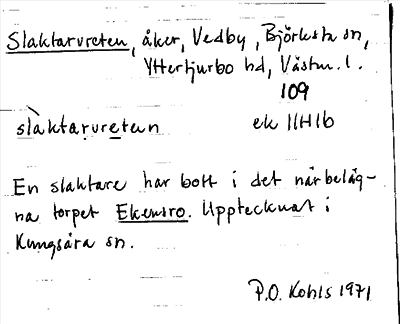 Slaktarvreten, åker, Vedby, Björksta sn,
Yttertjurbo hd, Västm. l.
109
slaktarvretən
ek 11H1b
En slaktare har bott i det närbeläg-
na torpet Ekensro. Upptecknat i
Kungsåra sn.
P.O. Kohls 1971